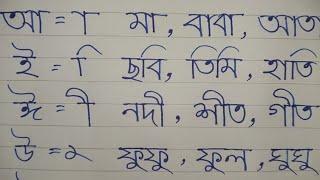 আ = া মা, বাবা, আত
ই = ি ছবি, তিমি, হাতি
ঈ = ী নদী, শীত, গীত
উ = ু ফুফু, ফুল, ঘুঘু